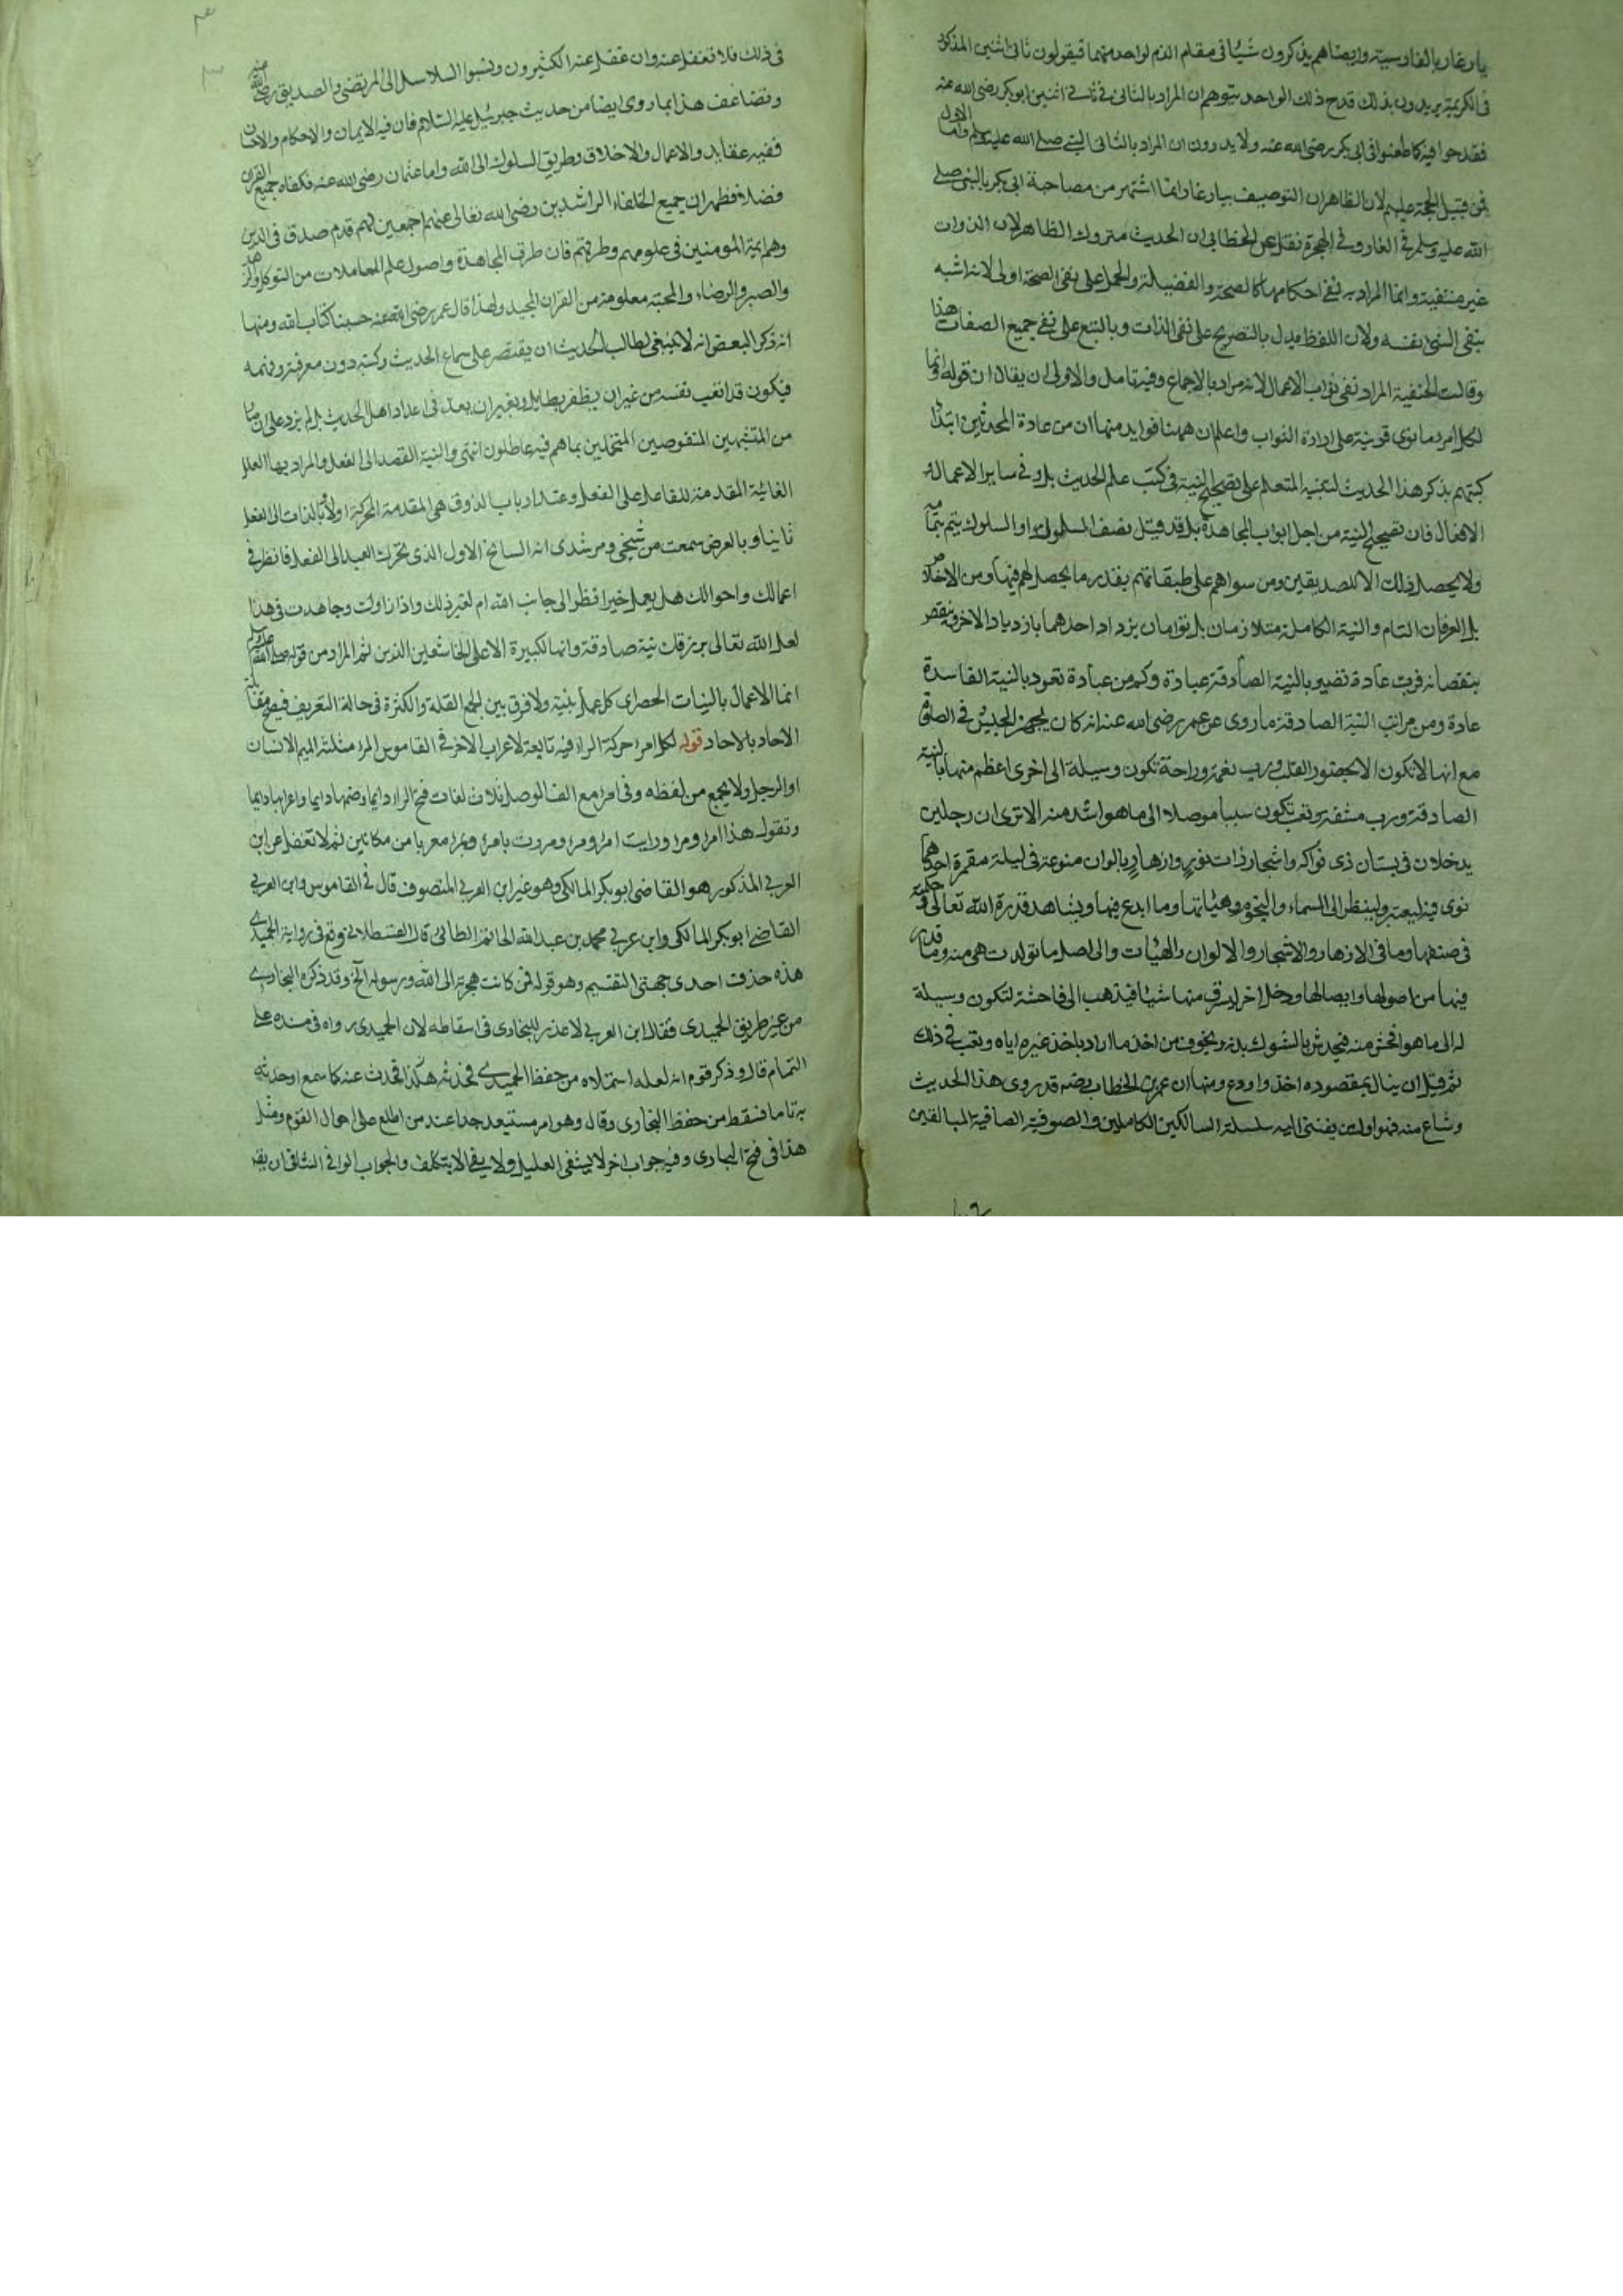 يار غار بالفارسية وايضا هم يذكرون شيئا فى مقام الذم لواحد منهما فيقولون ثانى اثنين المذكور
فى الكريمة يريدون بذلك قدح ذلك الواحد بتوهم ان المراد بالثانى فى ثانى اثنين ابو بكر رضى الله عنه
فقدحوا فيه كما طعنوا فى ابى بكر رضى الله عنه ولا يدرون ان المراد بالثانى النبى صلى الله عليه وسلم واما الاول
فمن قبيل الحجة عليهم لان الظاهر ان التوصيف بيار غار انما اشتهر من مصاحبة ابى بكر بالنبى صلى
الله عليه وسلم فى الغار وفى الهجرة نقل عن الخطابى ان الحديث متروك الظاهر لان الذوات
غير منتفية وانما المراد به نفى احكامها كالصحة والفضيلة والحمل على نفى الصحة اولى لانه اشبه
بنفى الشئ نفسه ولان اللفظ يدل بالتصريح على نفى الذات وبالتبع على نفى جميع الصفات هذا
وقالت الحنفية المراد نفى ثواب الاعمال لانه مراد بالاجماع وفيه تامل والاولى ان يقال ان قوله وانما
لكل امرء ما نوى قرينة على ارادة الثواب واعلم ان ههنا فوايد منها ان من عادة المحدثين ابتداء
كتبهم بذكر هذا الحديث لتنبيه المتعلم على تصحيح النية فى كتب علم الحديث بل وفى ساير الاعمال و
الافعال فان تصحيح النية من اجل ابواب المجاهدة بل قد قيل نصف السلوك او السلوك يتم بتمامه
ولا يحصل ذلك الا للصديقين ومن سواهم على طبقاتهم بقدر ما يحصل لهم فيها ومن الاخلاص
بل العرفان التام والنية الكاملة متلازمان بل توامان يزداد احدهما بازدياد الاخر وينقص
بنقصانه فرب عادة تصير بالنية الصادقة عبادة وكم من عبادة تعود بالنية الفاسدة
عادة ومن مراتب النية الصادقة ما روى عن عمر رضى الله عنه انه كان يجهز الجيش فى الصلوة
مع انها لا تكون الا بحضور القلب ورب نعمة وراحة تكون وسيلة الى اخرى اعظم منها بالنية
الصادقة ورب مشقة وتعب تكون سببا موصلا الى ما هو اشد منه الا ترى ان رجلين
يدخلان فى بستان ذى فواكه واشجار ذات نور وازهار بالوان منوعة فى ليلة مقمرة احدهما
نوى فيه ليعتبر ولينظر الى السماء والنجوم وهيئاتها وما ابدع فيها ويشاهد قدرة الله تعالى وحكمته
فى صنعها وما فى الازهار والاشجار والالوان والهيئات والى اصل ما تولدت هى منه وما قدر
فيها من اصولها وايصالها ودخل اخر ليسرق منها شيئا فيذهب الى فاحشة لتكون وسيلة
له الى ما هو افحش منه فيخدش بالشوك بدنه ويخوف من اخذ ما اراد باخذ غيره اياه وتعب فى ذلك
ثم قبل ان ينال بمقصوده اخذ واودع ومنها ان عمر بن الخطاب رضه قد روى هذا الحديث
وشاع منه فهو اول من يفتتنى اليه سلسلة السالكين الكاملين والصوفية الصافية المبالغين
فى ذلك فلا تغفل عنه وان غفل عنه الكثيرون ونسبوا السلاسل الى المرتضى والصديق رضى الله عنه
وتضاعف هذا بما روى ايضا من حديث جبرئيل عليه السلام فان فيه الايمان والاحكام والاحسان
ففيه عقايد والاعمال والاخلاق وطريق السلوك الى الله واما عثمان رضى الله عنه فكفاه جميع القران
فضلا فظهر ان جميع الخلفاء الراشدين رضى الله تعالى عنهم اجمعين لهم قدم صدق فى الدين
وهم ايمة المومنين فى علومهم وطرقهم فان طرق المجاهدة واصول علم المعاملات من التوكل والزهد
والصبر والرضاء والمحبة معلومة من القران المجيد ولهذا قال عمر رضى الله عنه حسبنا كتاب الله ومنها
انه ذكر البعض انه لا ينبغى لطالب الحديث ان يقتصر على سماع الحديث وكتبه دون معرفته وفهمه
فيكون قد اتعب نفسه من غير ان يظفر بطايل وبغير ان يعد فى اعداد اهل الحديث بل لم يزد على ان صار
من المتشبهين المنقوصين المتحلين بما هم فيه عاطلون انتهى والنية القصد الى الفعل والمراد بها العلة
الغائية المقدمة للفاعل على الفعل وعند ارباب الذوق هى المقدمة المحركة اولا بالذات الى الفعل
ثانيا وبالعرض سمعت من شيخى ومرشدى انه السانح الاول الذى تحرك العبد الى الفعل فانظر فى
اعمالك واحوالك هل يعمل خيرا نظرا الى جانب الله ام لغير ذلك واذا زاولت وجاهدت فى هذا
لعل الله تعالى يرزقك نية صادقة وانها لكبيرة الا على الخاشعين الذين ثم المراد من قوله صلى الله عليه وسلم
انما الاعمال بالنيات الحصر اى كل عمل بنية ولا فرق بين الجمع القلة والكثرة فى حالة التعريف فيصح مقابلة
الاحاد بالاحاد قوله لكل امرء حركة الراء فيه تابعة لاعراب الاخر فى القاموس المرء مثلثة الميم الانسان
او الرجل ولا يجمع من لفظه وفى امرء مع الف الوصل ثلاث لغات فتح الراء دايما وضمها دايما واعرابها دايما
وتقول هذا امرء ومرء ورايت امرء ومرء ومررت بامرء وبمرء معربا من مكانين ثم لا تغفل عن ابن
العربى المذكور هو القاضى ابو بكر المالكى وهو غير ابن العربى المتصوف قال فى القاموس وابن العربى
القاضى ابو بكر المالكى وابن عربى محمد بن عبد الله الحاتم الطائى قال القسطلانى وقع فى رواية الحميدى
هذه حذف احدى جهتى التقسيم وهو قوله فمن كانت هجرته الى الله ورسوله الخ وقد ذكره البخارى
من غير طريق الحميدى فقال ابن العربى لا عذر للبخارى فى اسقاطه لان الحميدى رواه فى مسنده على
التمام قال وذكر قوم انه لعله استملاه من حفظ الحميدى فحدثه هكذا فحدث عنه كما سمع او حدثه
به تاما فسقط من حفظ البخارى وقال وهو امر مستبعد جدا عند من اطلع على احوال القوم ومثل
هذا فى فتح البارى وفيه جواب اخر لا يشفى العليل ولا يفى الا بتكلف والجواب الوافى الشافى ان يقر